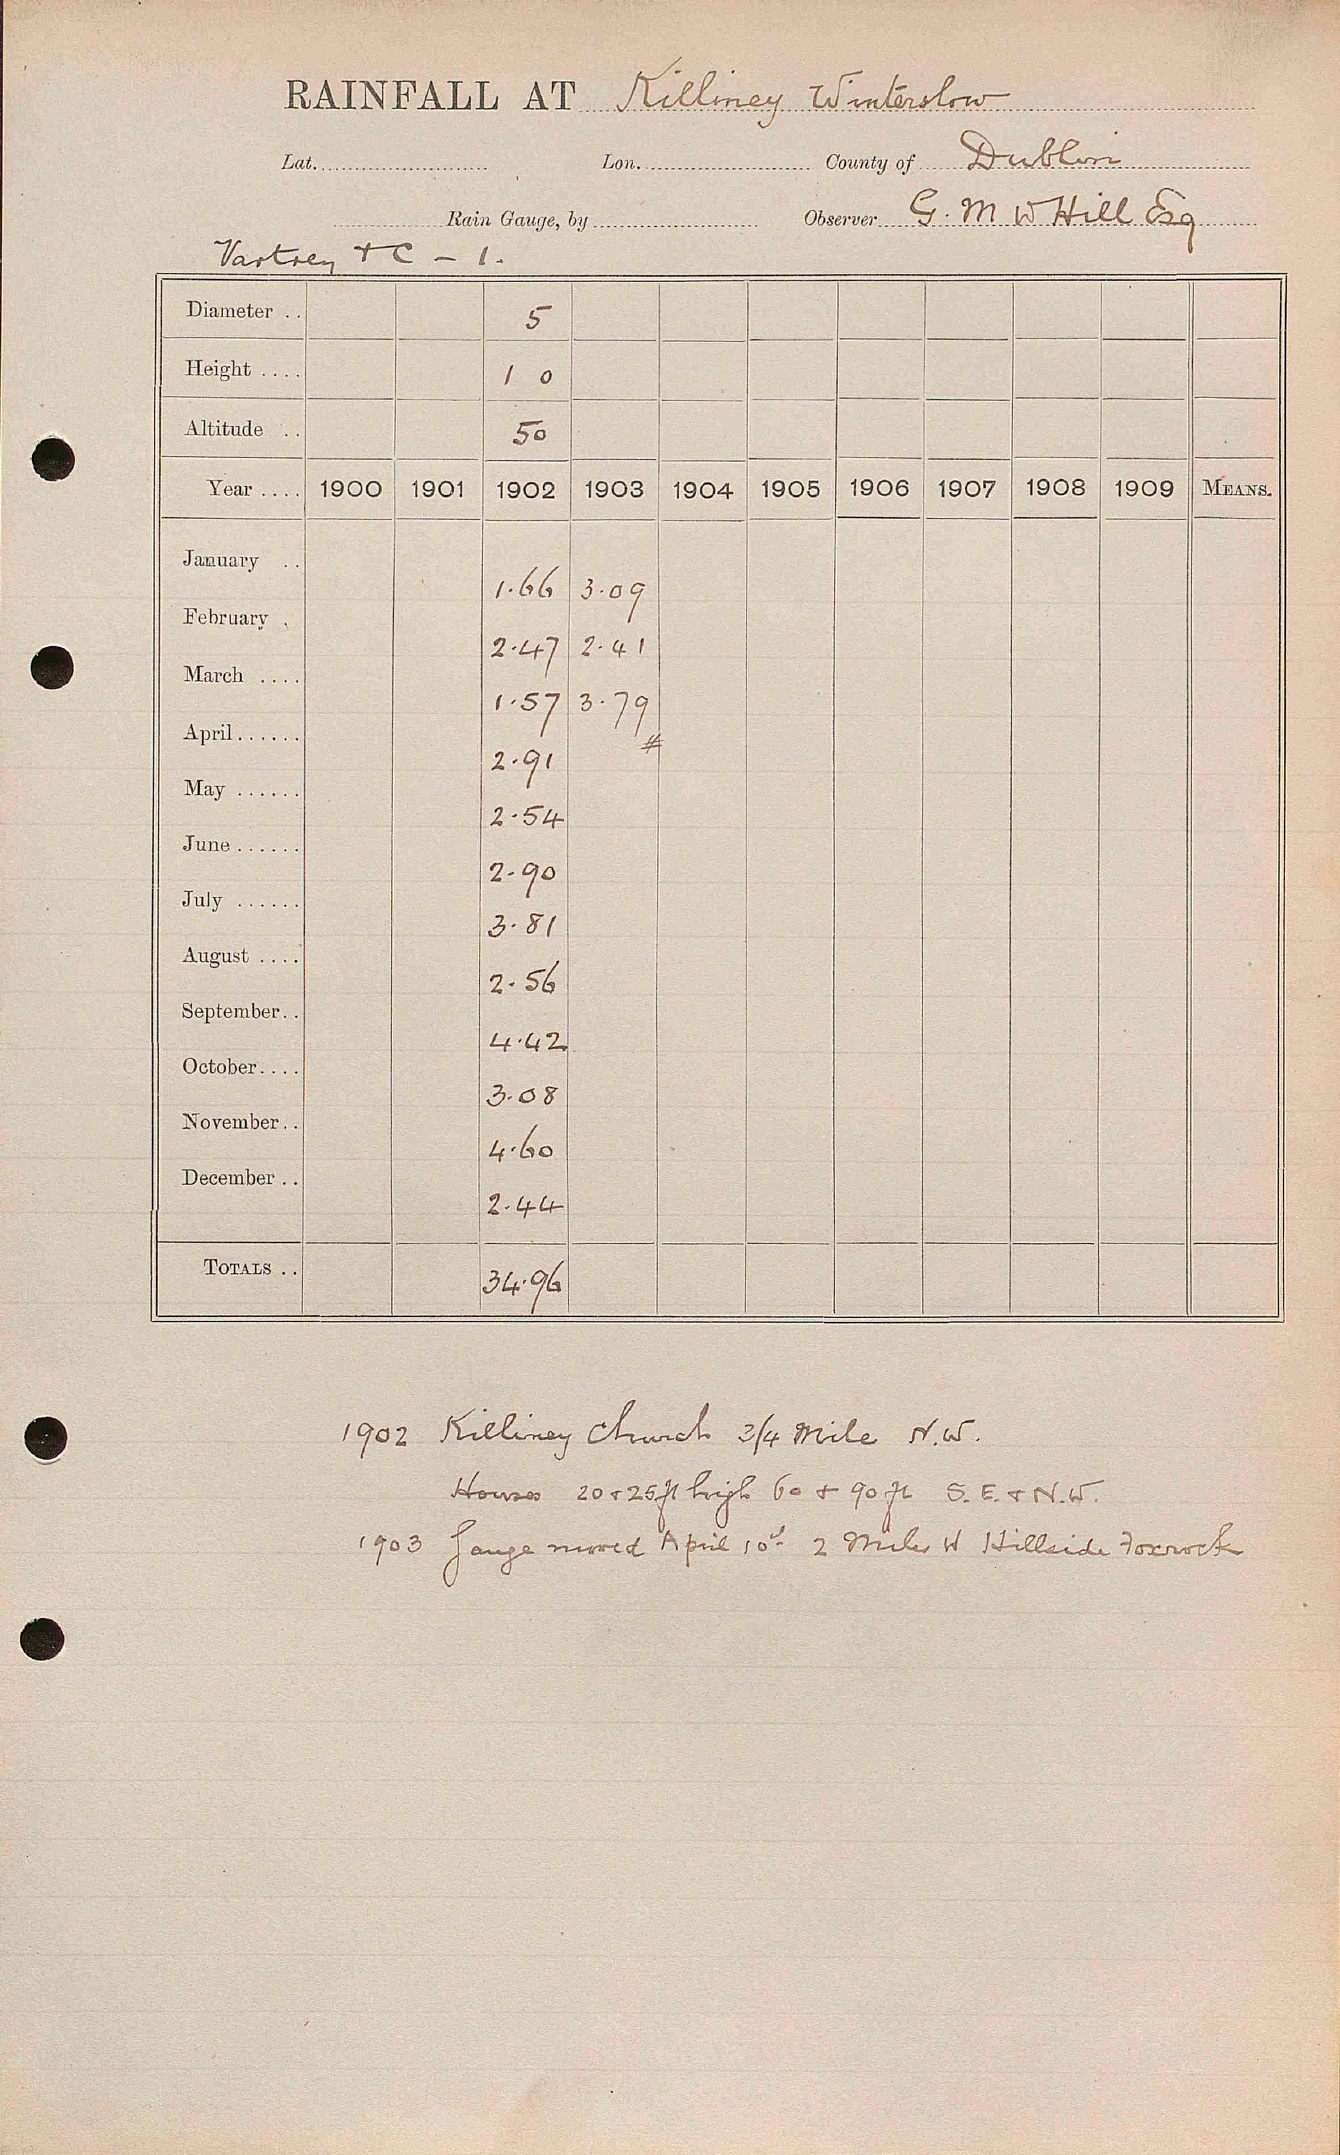 RAINFALL AT Killiney Winterslow
Lat. Lon. County of Dublin
Rain Gauge, by Observer G. M W Hill Esq
Vartrey & C - 1.
Diameter .. 5
Height .... 1 0
Altitude .. 50
Year .... 1900 1901 1902 1903 1904 1905 1906 1907 1908 1909 MEANS.
January .. 1.66 3.09
February . 2.47 2.41
March .... 1.57 3.79
April...... 2.91 #
May ...... 2.54
June...... 2.90
July ...... 3.81
August .... 2.56
September.. 4.42
October.... 3.08
November.. 4.60
December .. 2.44
TOTALS .. 34.96
1902 Killiney Church 3/4 Mile N.W.
Houses 20 & 25 ft high 60 & 90 ft S.E. & N.W.
1903 Gauge moved April 10th 2 Miles W Hillside Foxrock